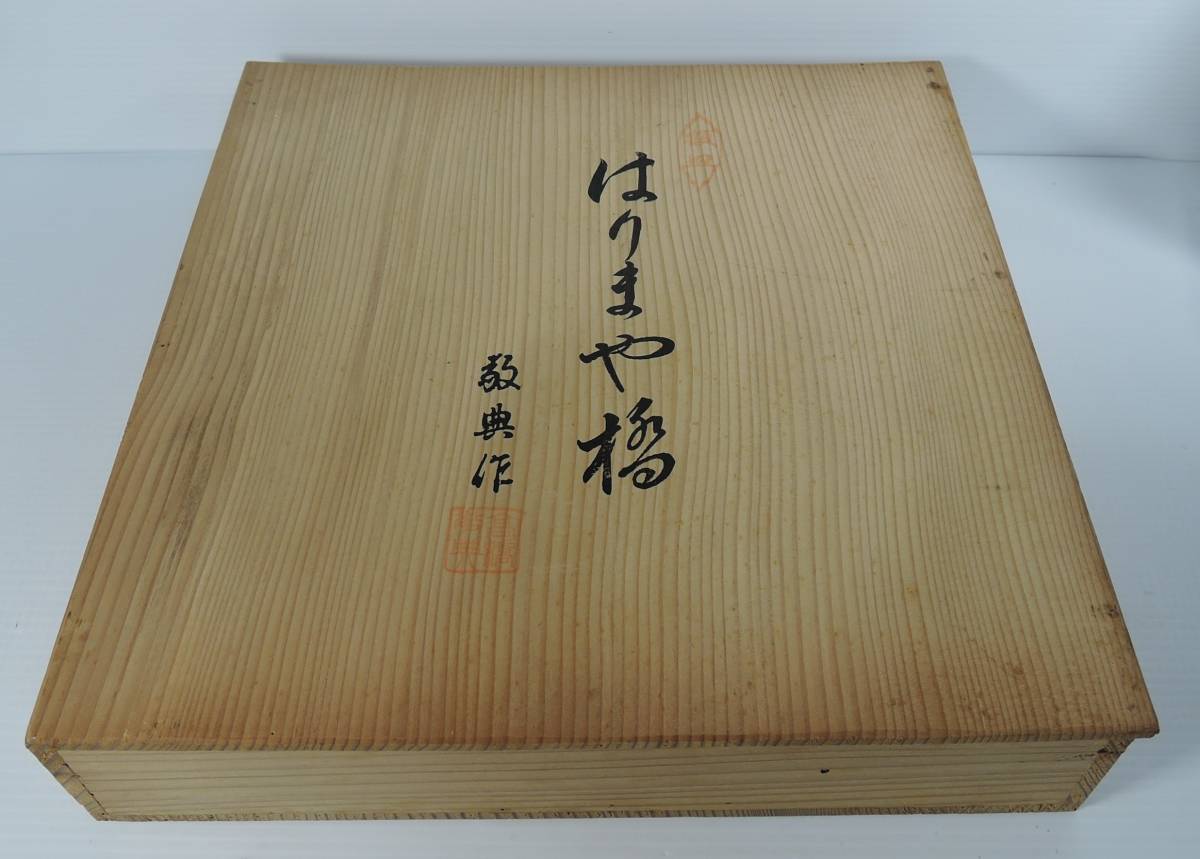 はりまや橋
敬典作